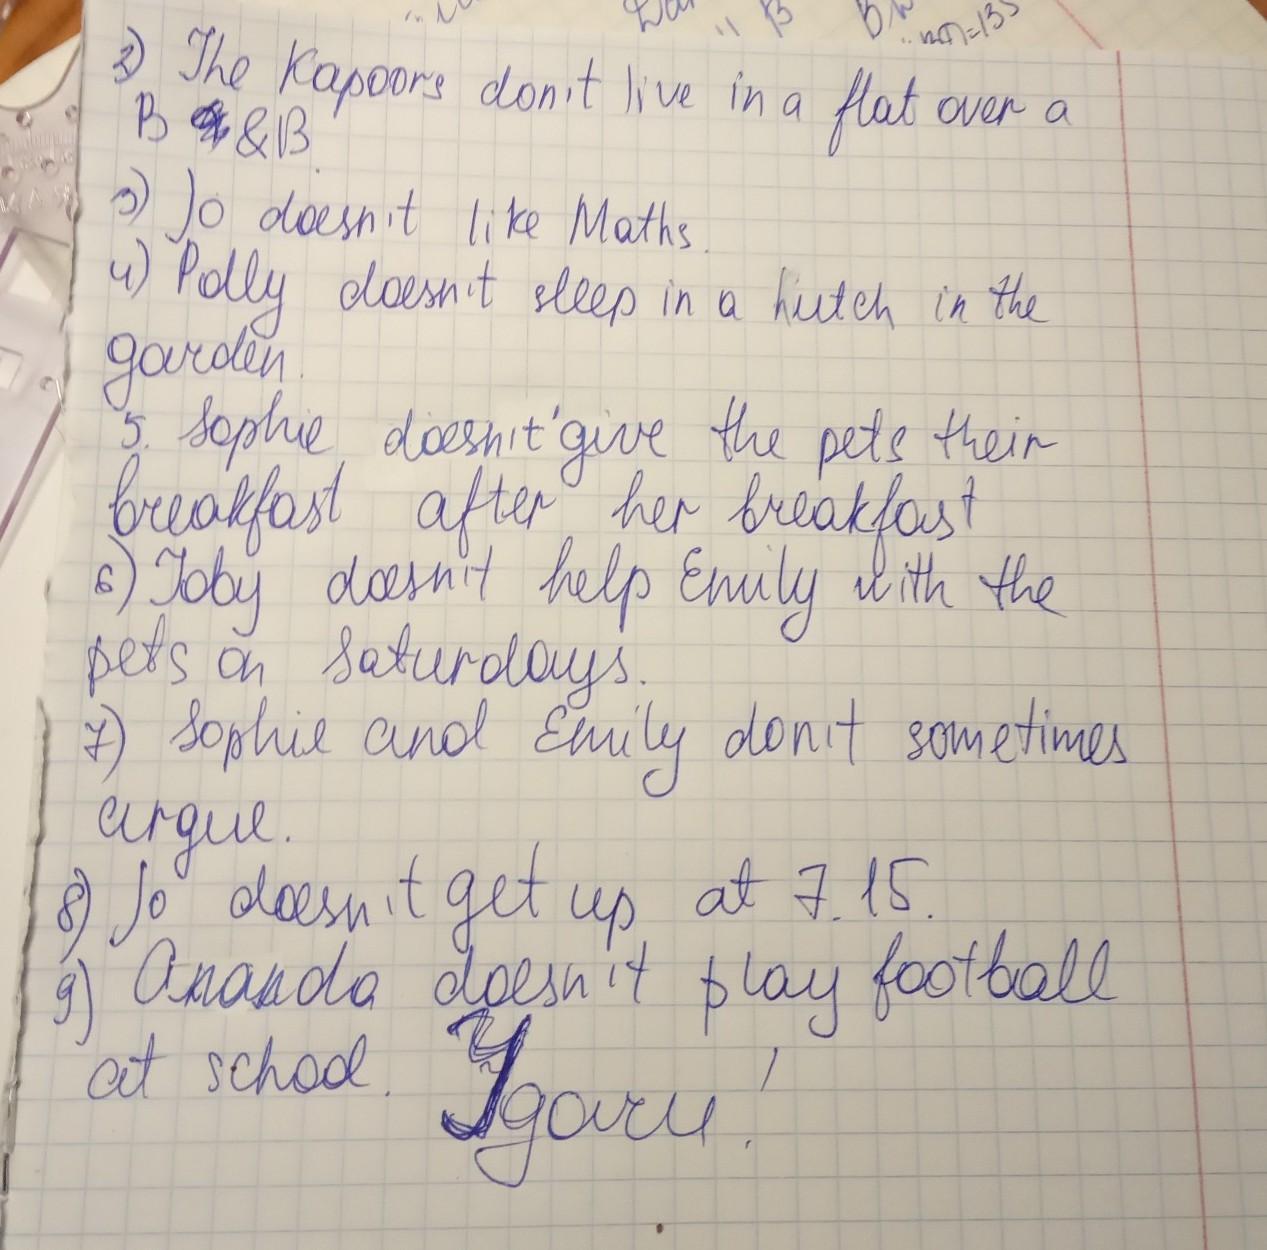 2) The Kapoors don't live in a flat over a
B &B.
3) Jo doesn't like Maths.
4) Polly doesn't sleep in a hutch in the
garden.
5. Sophie doesn't give the pets their
breakfast after her breakfast
6) Toby doesn't help Emily with the
pets on Saturdays.
7) Sophie and Emily don't sometimes
argue.
8) Jo doesn't get up at 7.15.
9) Ananda doesn't play football
at school. Удачи!